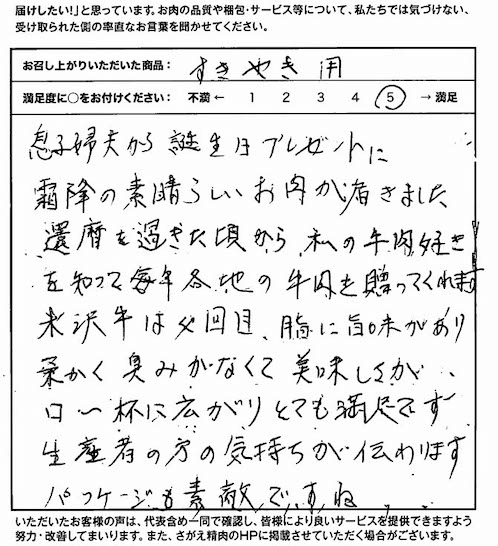 届けしたい!」と思っています。お肉の品質や梱包・サービス等について、私たちでは気づけない、
受け取られた側の率直なお言葉を聞かせてください。
お召し上がりいただいた商品: すきやき用
満足度に○をお付けください: 不満 ← 1 2 3 4 5 → 満足
息子婦夫から誕生日プレゼントに
霜降の素晴らしいお肉が届きました
還暦を過ぎた頃から 私の牛肉好き
を知って毎年各地の牛肉を贈ってくれます
米沢牛は 回目、脂に旨味があり
柔かく 臭みがなくて 美味しさが、
口一杯に広がりとても満足です
生産者の方の気持ちが伝わります
パッケージも素敵ですね
いただいたお客様の声は、代表含め一同で確認し、皆様により良いサービスを提供できますよう
努力・改善してまいります。また、さがえ精肉のHPに掲載させていただく場合がございます。